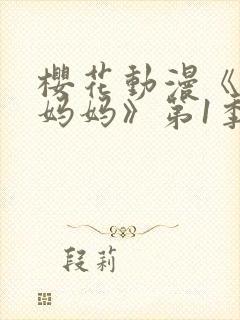 櫻花動漫《
妈妈》第1季
段莉